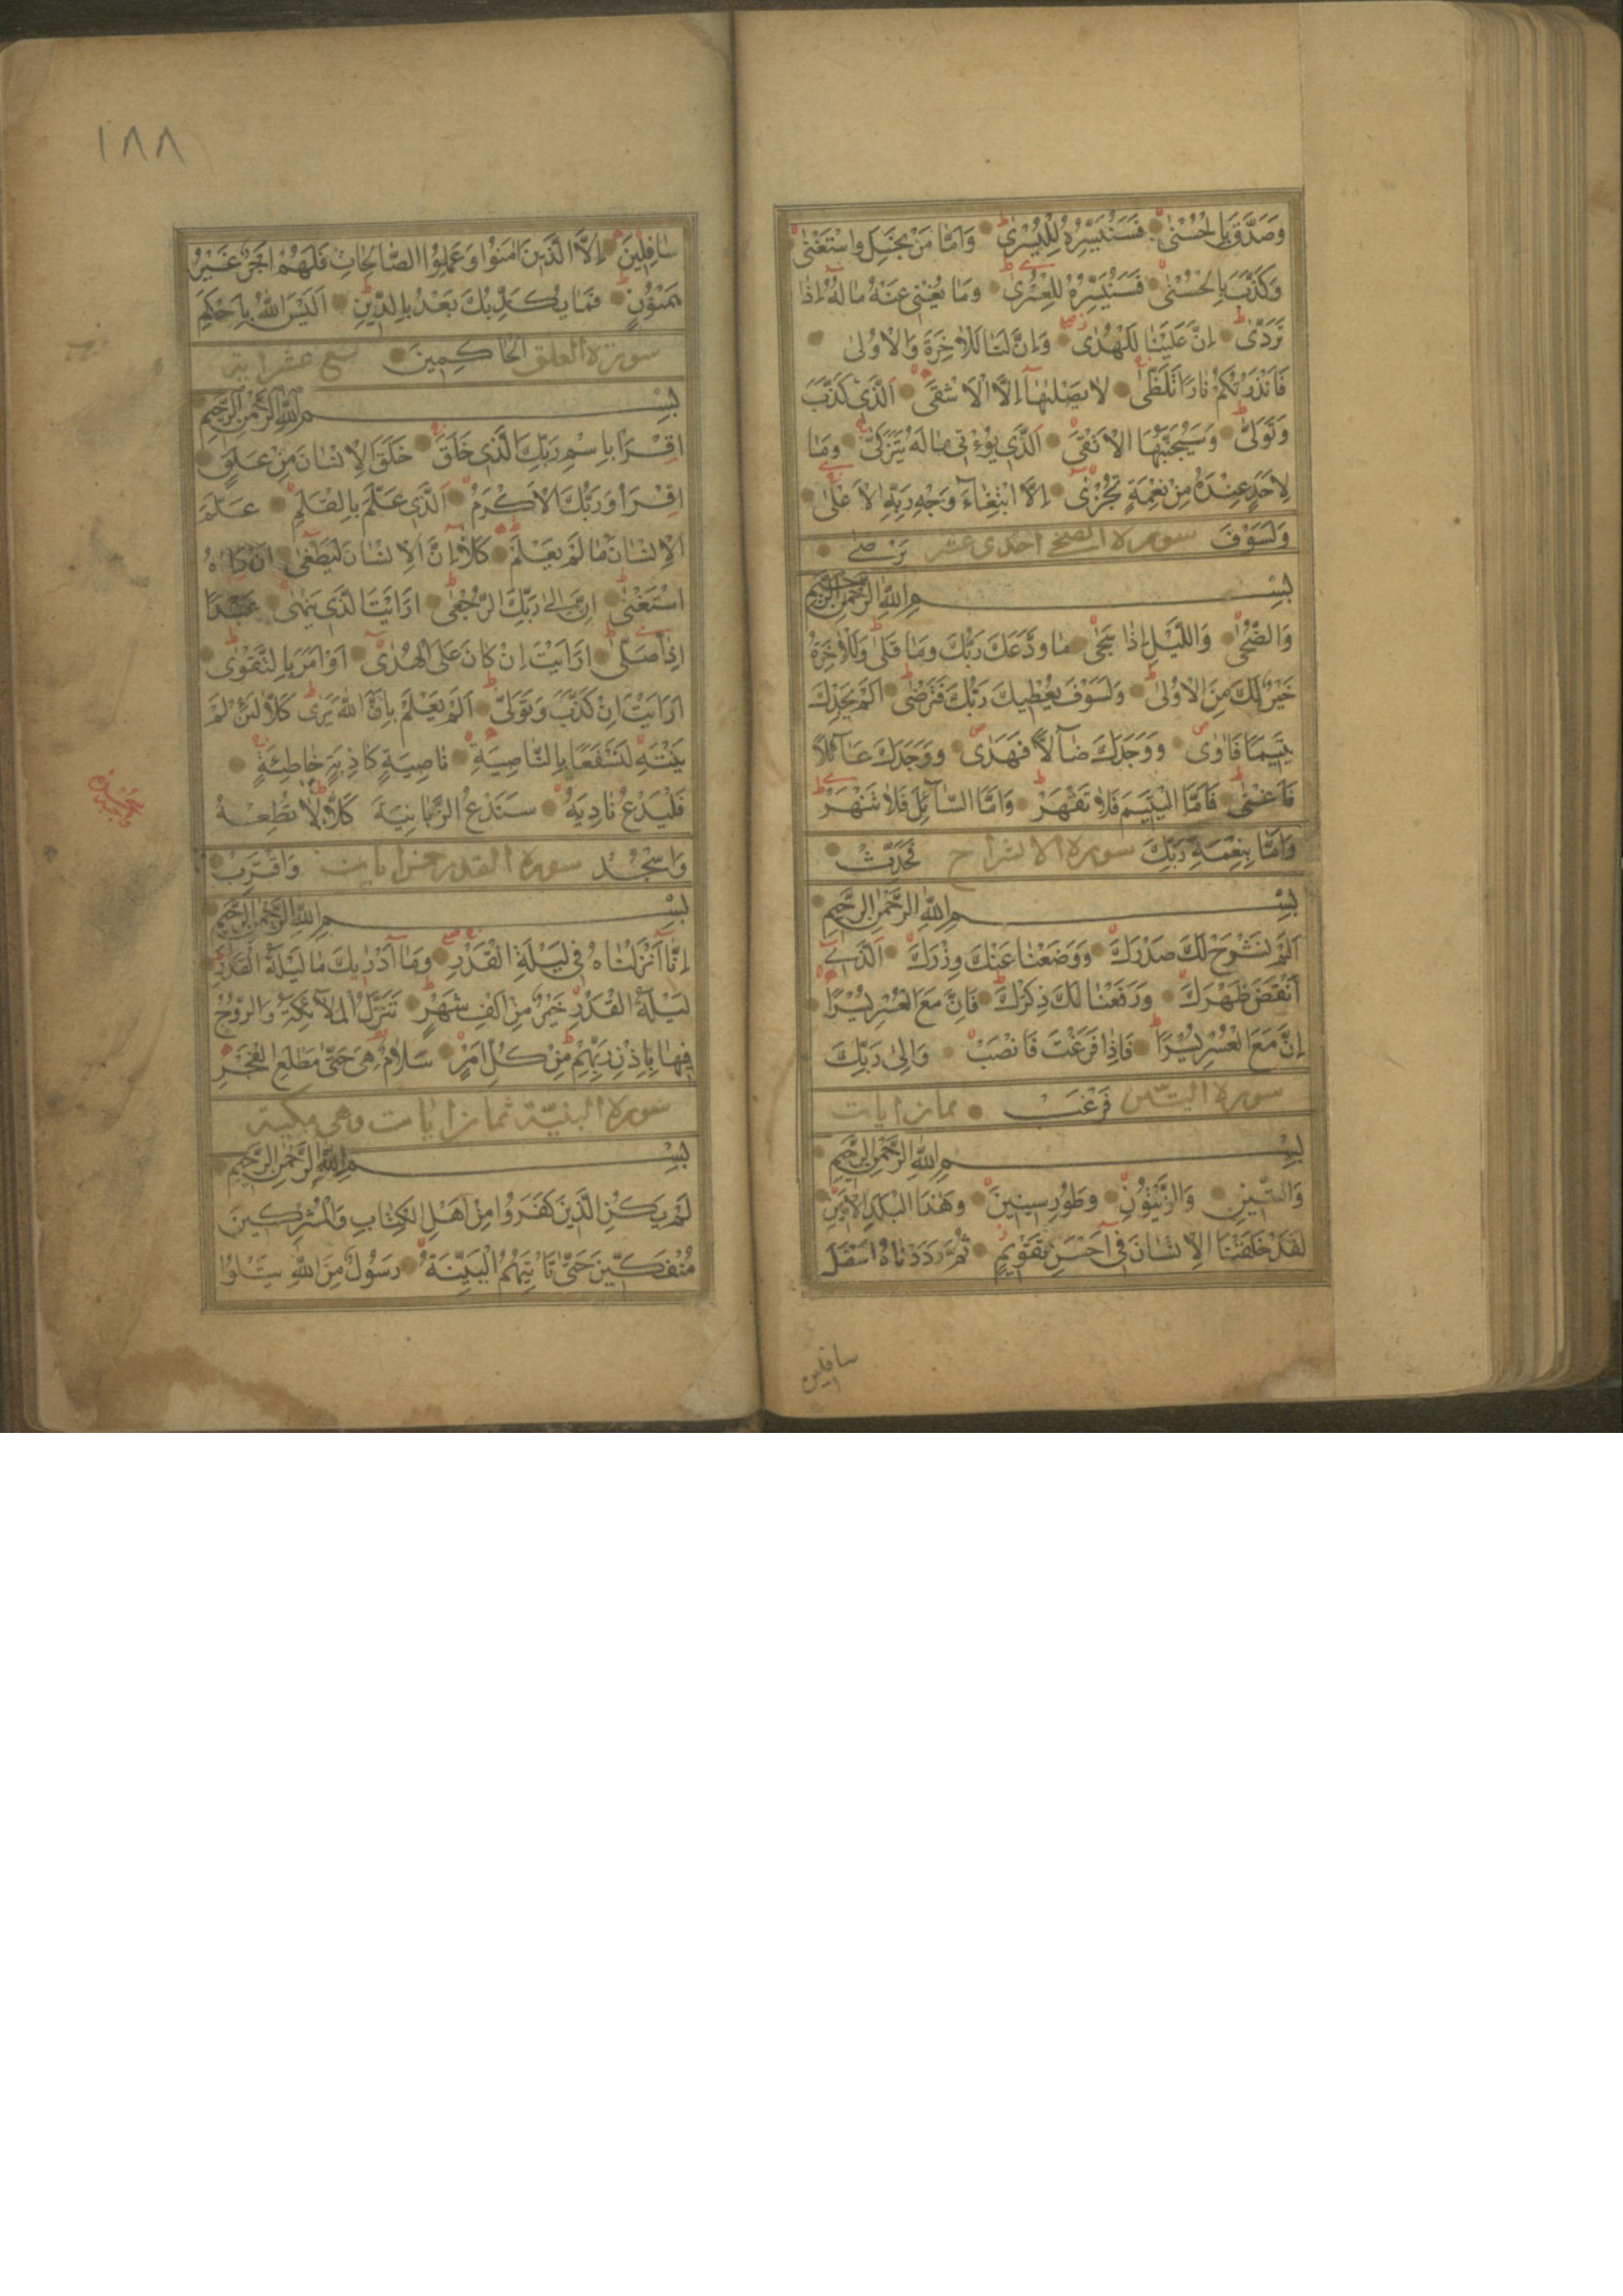 وَصَدَّقَ بِالْحُسْنٰى فَسَنُيَسِّرُهُ لِلْيُسْرٰى وَاَمَّا مَنْ بَخِلَ وَاسْتَغْنٰى
وَكَذَّبَ بِالْحُسْنٰى فَسَنُيَسِّرُهُ لِلْعُسْرٰى وَمَا يُغْنِى عَنْهُ مَا لُهُ اِذَا
تَرَدّٰى اِنَّ عَلَيْنَا لَلْهُدٰى وَاِنَّ لَنَا لَلْاٰخِرَةَ وَالْاُولٰى
فَاَنْذَرْتُكُمْ نَارًا تَلَظّٰى لَا يَصْلٰيهَا اِلَّا الْاَشْقَى اَلَّذِى كَذَّبَ
وَتَوَلّٰى وَسَيُجَنَّبُهَا الْاَتْقَى اَلَّذِى يُؤْتِى مَا لَهُ يَتَزَكّٰى وَمَا
لِاَحَدٍ عِنْدَهُ مِنْ نِعْمَةٍ تُجْزٰى اِلَّا ابْتِغَاءَ وَجْهِ رَبِّهِ الْاَعْلٰى
وَلَسَوْفَ سورة الضحى احدى عشر يَرْضٰى
بِسْمِ اللّٰهِ الرَّحْمٰنِ الرَّحِيمِ
وَالضُّحٰى وَاللَّيْلِ اِذَا سَجٰى مَا وَدَّعَكَ رَبُّكَ وَمَا قَلٰى وَلَلْاٰخِرَةُ
خَيْرٌ لَكَ مِنَ الْاُولٰى وَلَسَوْفَ يُعْطِيكَ رَبُّكَ فَتَرْضٰى اَلَمْ يَجِدْكَ
يَتِيمًا فَاٰوٰى وَوَجَدَكَ ضَآلًّا فَهَدٰى وَوَجَدَكَ عَآئِلًا
فَاَغْنٰى فَاَمَّا الْيَتِيمَ فَلَا تَقْهَرْ وَاَمَّا السَّآئِلَ فَلَا تَنْهَرْ
وَاَمَّا بِنِعْمَةِ رَبِّكَ سورة الانشراح فَحَدِّثْ
بِسْمِ اللّٰهِ الرَّحْمٰنِ الرَّحِيمِ
اَلَمْ نَشْرَحْ لَكَ صَدْرَكَ وَوَضَعْنَا عَنْكَ وِزْرَكَ اَلَّذِى
اَنْقَضَ ظَهْرَكَ وَرَفَعْنَا لَكَ ذِكْرَكَ فَاِنَّ مَعَ الْعُسْرِ يُسْرًا
اِنَّ مَعَ الْعُسْرِ يُسْرًا فَاِذَا فَرَغْتَ فَانْصَبْ وَاِلٰى رَبِّكَ
سورة التين فَرْغَبْ ثمان ايات
بِسْمِ اللّٰهِ الرَّحْمٰنِ الرَّحِيمِ
وَالتِّينِ وَالزَّيْتُونِ وَطُورِ سِينِينَ وَهٰذَا الْبَلَدِ الْاَمِينِ
لَقَدْ خَلَقْنَا الْاِنْسَانَ فِى اَحْسَنِ تَقْوِيمٍ ثُمَّ رَدَدْنَاهُ اَسْفَلَ
سافلين
١٨٨
سَافِلِينَ اِلَّا الَّذِينَ اٰمَنُوا وَعَمِلُوا الصَّالِحَاتِ فَلَهُمْ اَجْرٌ غَيْرُ
مَمْنُونٍ فَمَا يُكَذِّبُكَ بَعْدُ بِالدِّينِ اَلَيْسَ اللّٰهُ بِاَحْكَمِ
سورة العلق الْحَاكِمِينَ تسع عشر اية
بِسْمِ اللّٰهِ الرَّحْمٰنِ الرَّحِيمِ
اِقْرَأْ بِاسْمِ رَبِّكَ الَّذِى خَلَقَ خَلَقَ الْاِنْسَانَ مِنْ عَلَقٍ
اِقْرَأْ وَرَبُّكَ الْاَكْرَمُ اَلَّذِى عَلَّمَ بِالْقَلَمِ عَلَّمَ
الْاِنْسَانَ مَا لَمْ يَعْلَمْ كَلَّا اِنَّ الْاِنْسَانَ لَيَطْغٰى اَنْ رَاٰهُ
اسْتَغْنٰى اِنَّ اِلٰى رَبِّكَ الرُّجْعٰى اَرَاَيْتَ الَّذِى يَنْهٰى عَبْدًا
اِذَا صَلّٰى اَرَاَيْتَ اِنْ كَانَ عَلَى الْهُدٰى اَوْ اَمَرَ بِالتَّقْوٰى
اَرَاَيْتَ اِنْ كَذَّبَ وَتَوَلّٰى اَلَمْ يَعْلَمْ بِاَنَّ اللّٰهَ يَرٰى كَلَّا لَئِنْ لَمْ
يَنْتَهِ لَنَسْفَعًا بِالنَّاصِيَةِ نَاصِيَةٍ كَاذِبَةٍ خَاطِئَةٍ
فَلْيَدْعُ نَادِيَهُ سَنَدْعُ الزَّبَانِيَةَ كَلَّا لَا تُطِعْهُ
وَاسْجُدْ سورة القدر خمس ايات وَاقْتَرِبْ
بِسْمِ اللّٰهِ الرَّحْمٰنِ الرَّحِيمِ
اِنَّا اَنْزَلْنَاهُ فِى لَيْلَةِ الْقَدْرِ وَمَا اَدْرٰيكَ مَا لَيْلَةُ الْقَدْرِ
لَيْلَةُ الْقَدْرِ خَيْرٌ مِنْ اَلْفِ شَهْرٍ تَنَزَّلُ الْمَلَآئِكَةُ وَالرُّوحُ
فِيهَا بِاِذْنِ رَبِّهِمْ مِنْ كُلِّ اَمْرٍ سَلَامٌ هِىَ حَتّٰى مَطْلَعِ الْفَجْرِ
سورة البنيّة ثمان ايات وهى مكية
بِسْمِ اللّٰهِ الرَّحْمٰنِ الرَّحِيمِ
لَمْ يَكُنِ الَّذِينَ كَفَرُوا مِنْ اَهْلِ الْكِتَابِ وَالْمُشْرِكِينَ
مُنْفَكِّينَ حَتّٰى تَأْتِيَهُمُ الْبَيِّنَةُ رَسُولٌ مِنَ اللّٰهِ يَتْلُوا